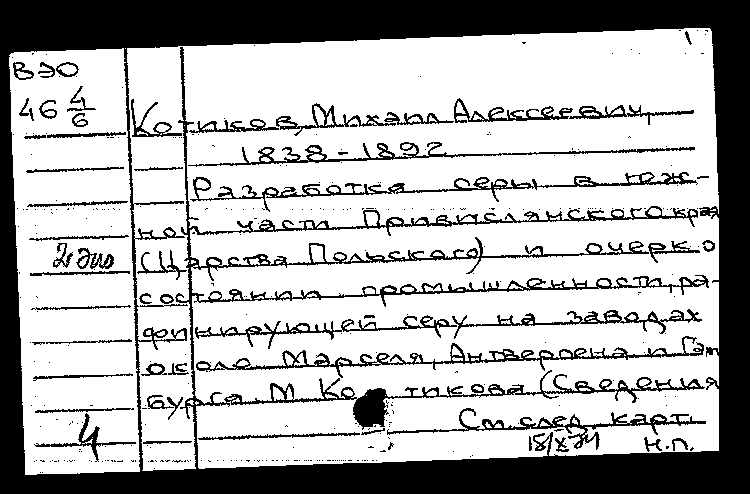 1
ВЭО
46 4/6
Котиков, Михаил Алексеевич,
1838-1892
Разработка серы в юж-
ной части Привислянского края
2 экз
(Царства Польского) и очерк о
состоянии промышленности, ра-
финирующей серу на заводах
около Марселя, Антверпена и Гам
бурга. М Котикова (Сведения
4
См. след. карт.
Н.П.